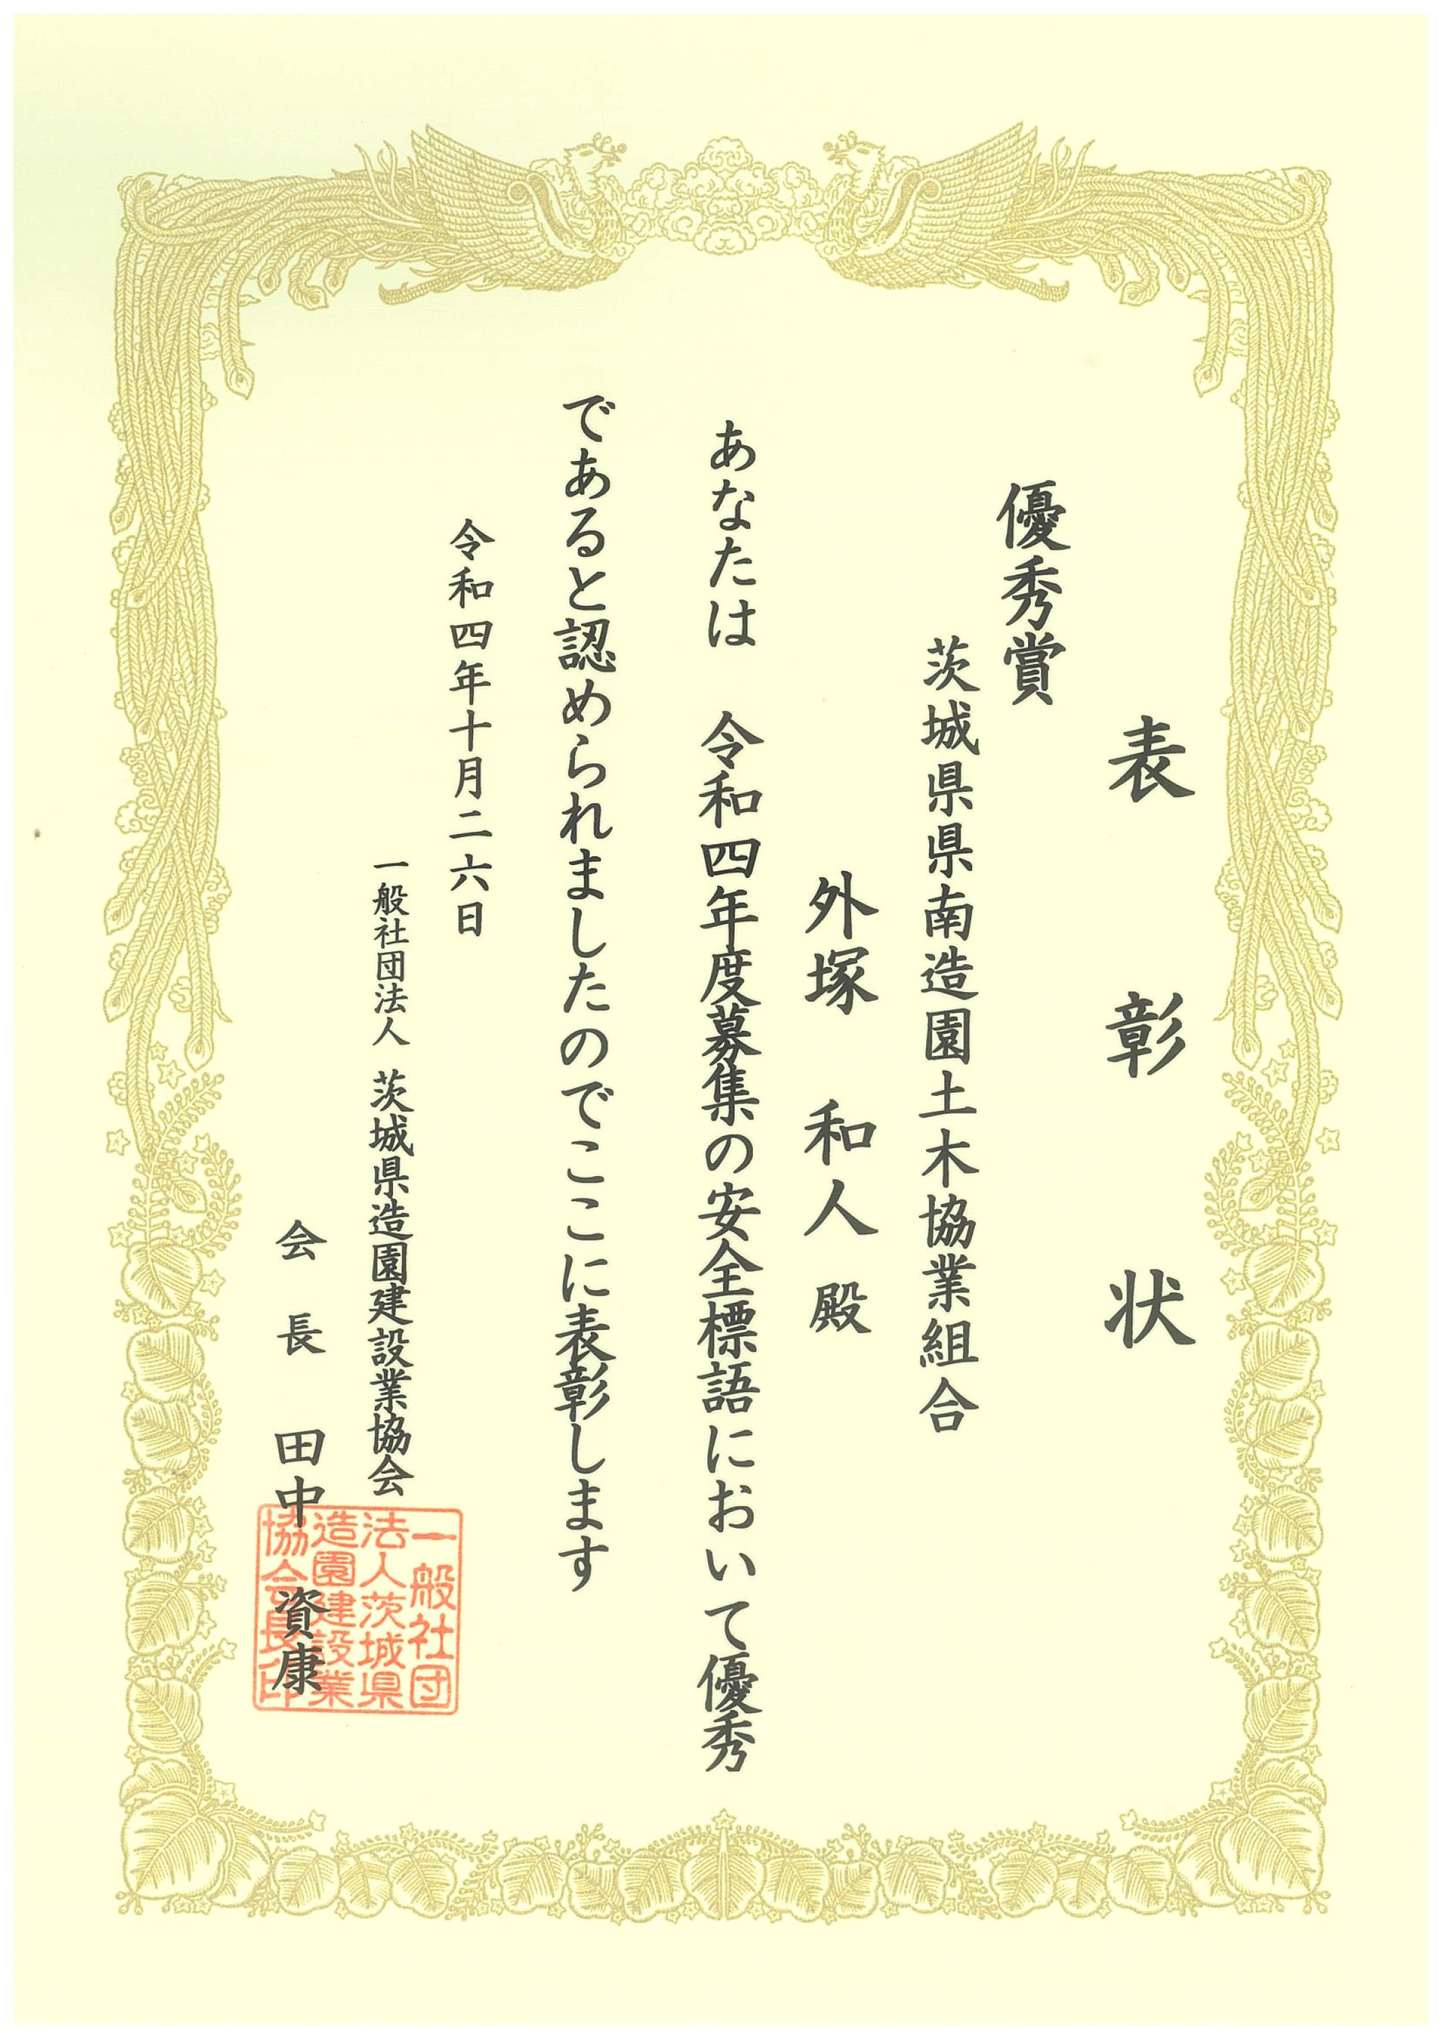 表彰状
優秀賞
茨城県県南造園土木協業組合
外塚 和人 殿
あなたは 令和四年度募集の安全標語において優秀
であると認められましたのでここに表彰します
令和四年十月二六日
一般社団法人 茨城県造園建設業協会
会長 田中 資康
一般社団
法人茨城県
造園建設業
協会長印